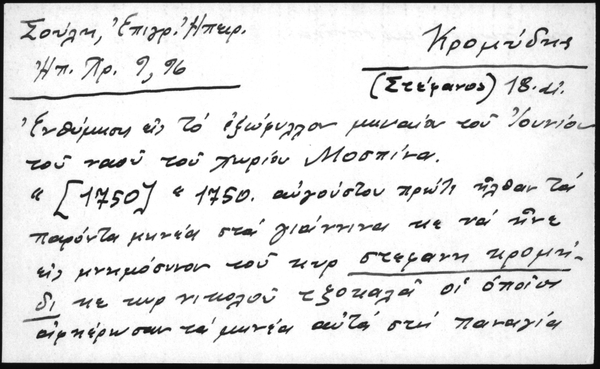 Σούλη, Ἐπιγρ. Ἠπειρ.
Ἠπ. Χρ. 9, 96
Κρομύδης
(Στέφανος) 18. αἰ.
Ἐνθύμησις εἰς τό ἐξώφυλλον μηναίου τοῦ Ἰουνίου
τοῦ ναοῦ τοῦ χωρίου Μοσπίνα.
" [1750] " 1750. αὐγούστου πρώτι ἦλθαν τά
παρόντα μηνέα στά γιάννινα κε νά ἦνε
εἰς μνημόσυνον τοῦ κυρ στεφανη κρομη-
δι κε κυρ νικολοῦ τζοκαλᾶ οἱ ὁποῖοι
αἰφηέρωσαν τά μηνέα αὐτά στή παναγία